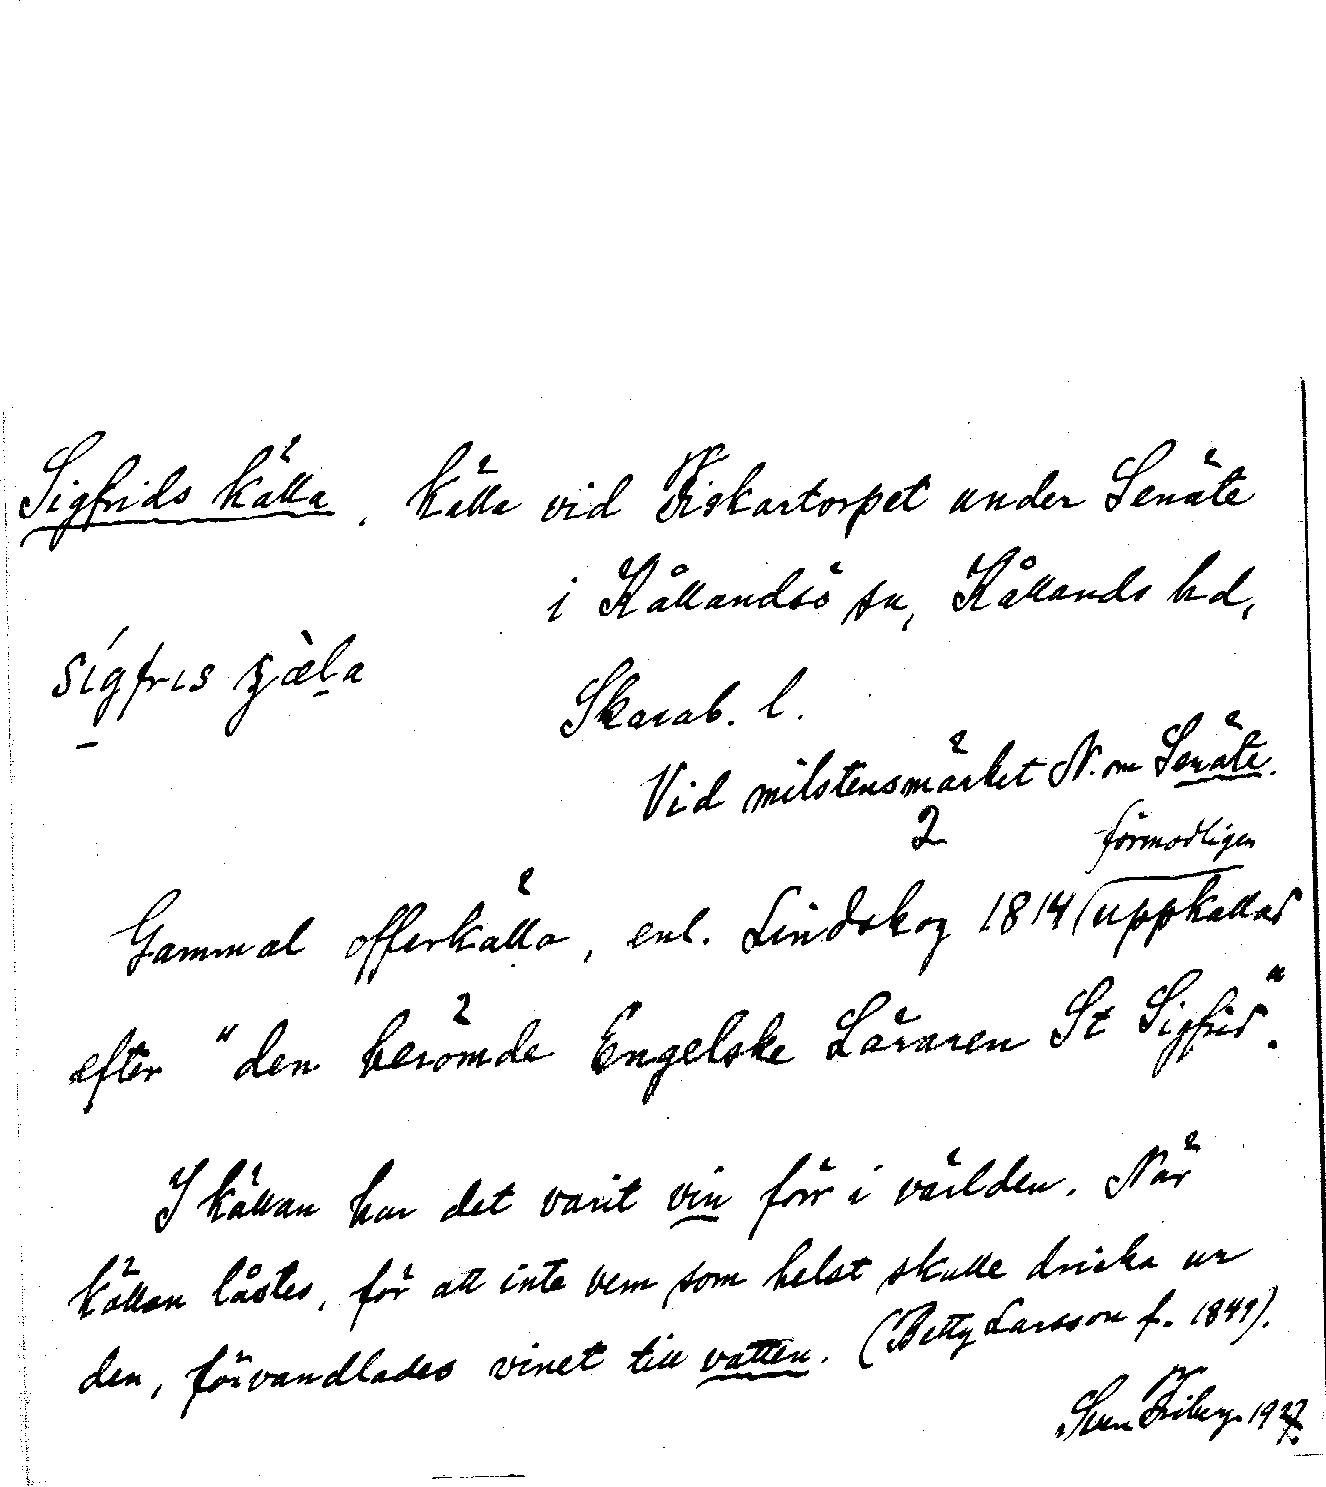 Sigfrids källa, källa vid Fiskartorpet under Senäte
i Kållandsö sn, Kållands hd,
sigfris
Skarab. l.
Vid milstensmärket N. om Senäte.
2
förmodligen
Gammal offerkälla, enl. Lindskog 1814 uppkallad
efter "den berömde Engelske Läraren St Sigfrid".
I källan har det varit vin förr i världen. När
källan låstes, för att inte vem som helst skulle dricka ur
den, förvandlades vinet till vatten. (Betty Larsson f. 1849).
Sven Friberg 1927.